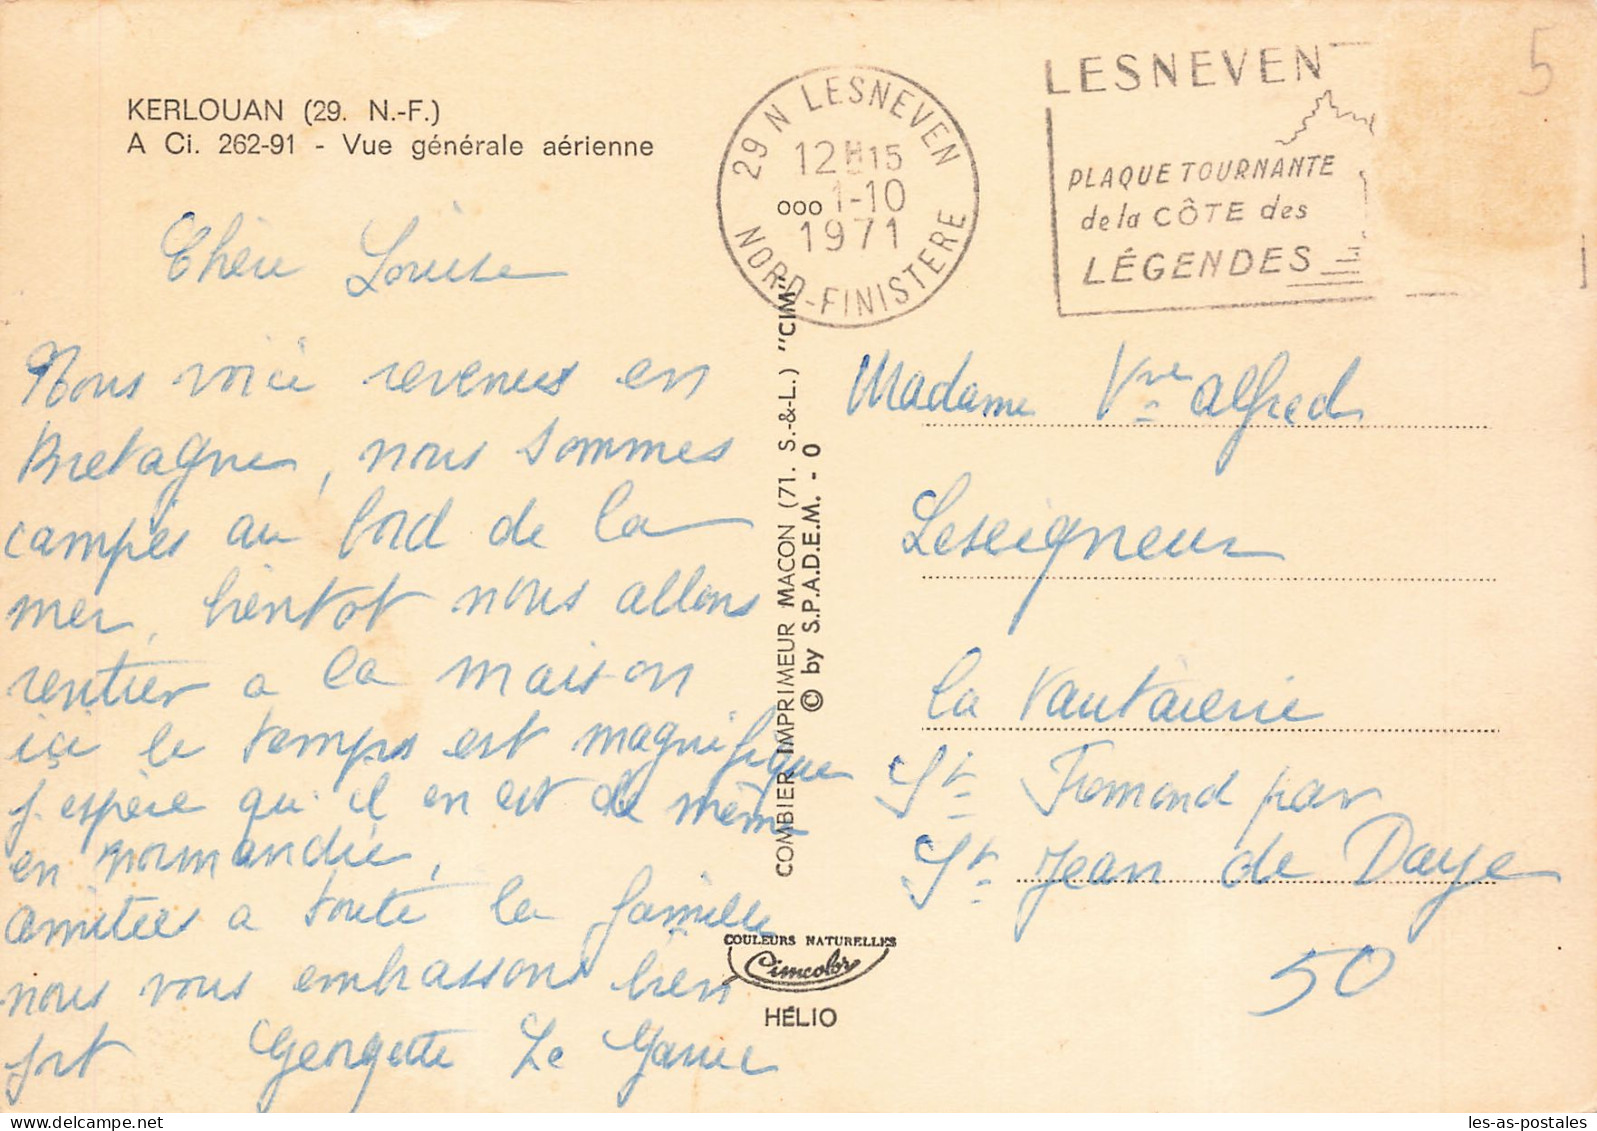 KERLOUAN (29. N.-F.)
A Ci. 262-91 - Vue générale aérienne
Chère Louise
Nous voici revenues en
Bretagne, nous sommes
campés au bord de la
mer, bientot nous allons
rentrer a la maison
içi le temps est magnifique
j'espère qu'il en est de même
en normandie,
amitiées a toute la famille
nous vous embrassons bien
fort Georgette Le
COMBIER IMPRIMEUR MACON (71. S.-&-L.) "CIM"
© by S.P.A.D.E.M. - 0
COULEURS NATURELLES
Cimcolor
HÉLIO
29 N LESNEVEN
12H15
000 1-10
1971
NORD-FINISTERE
LESNEVEN
PLAQUE TOURNANTE
de la CÔTE des
LÉGENDES
5
Madame Vve alfred
Leseigneur
la Vautairerie
St Fromond par
St Jean de Daye
50
les-as-postales